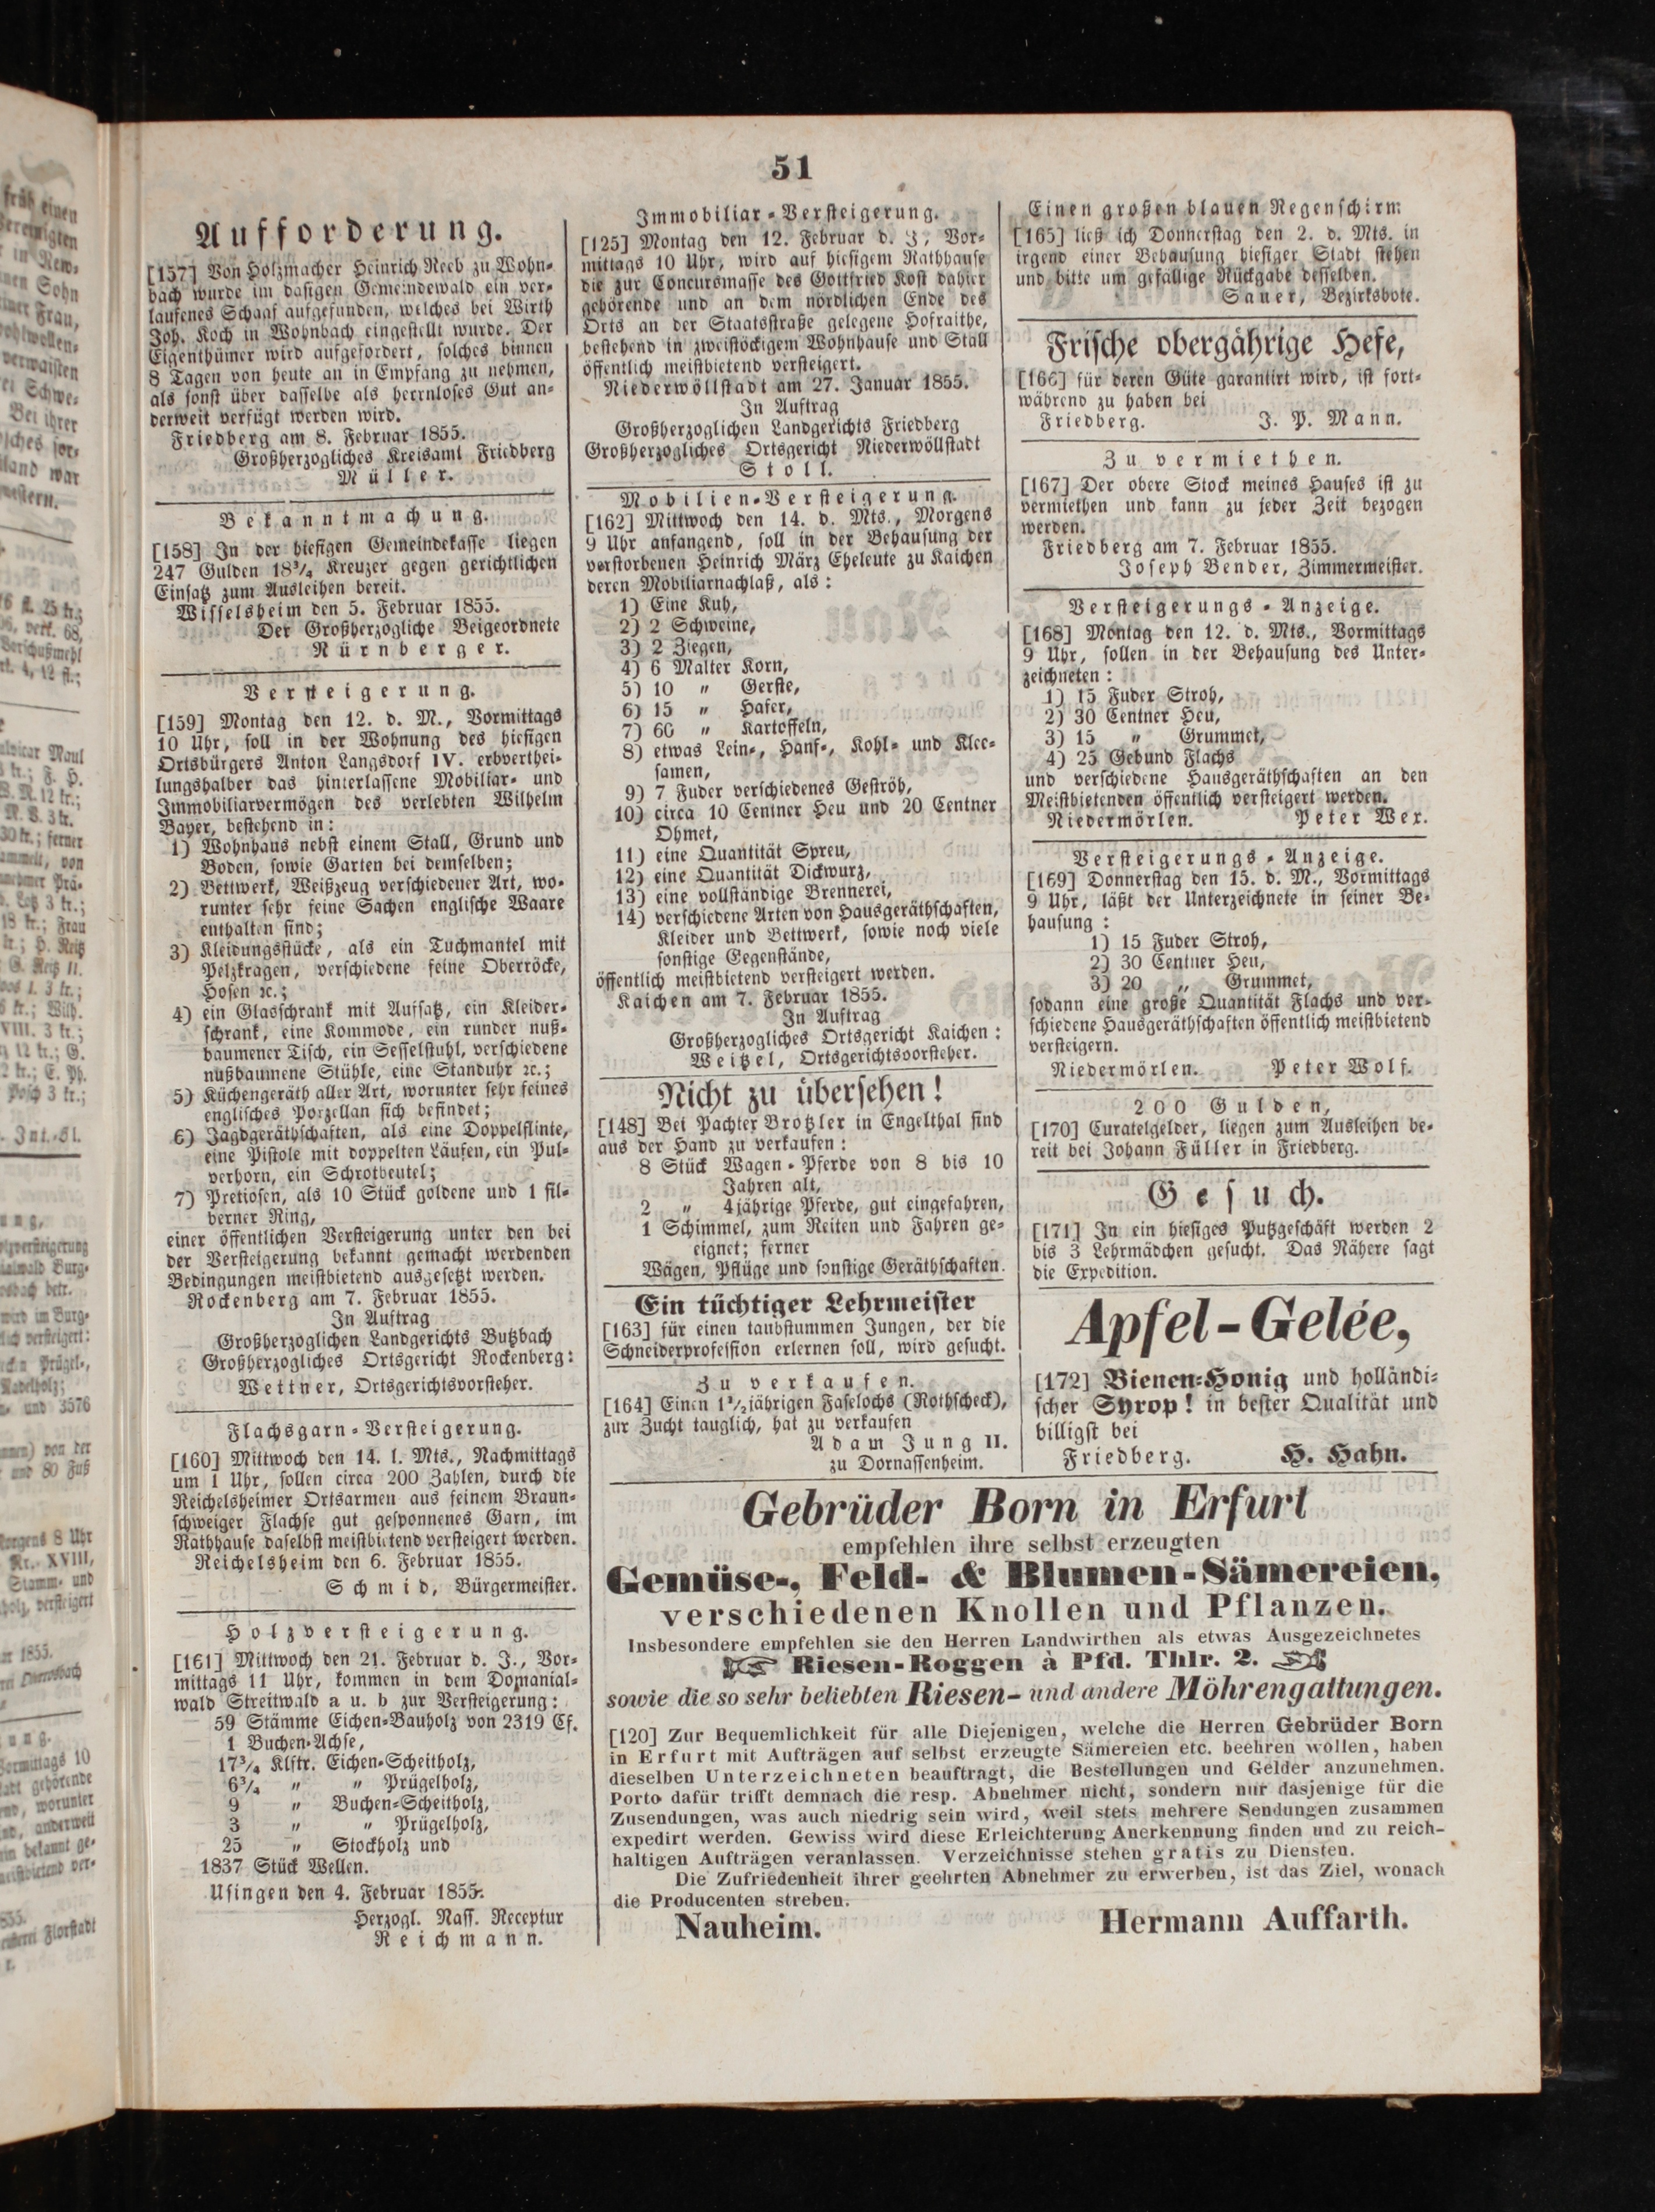 51
Aufforderung.
[157] Von Holzmacher Heinrich Reeb zu Wohn-
bach wurde im dasigen Gemeindewald ein ver-
laufenes Schaaf aufgefunden, welches bei Wirth
Joh. Koch in Wohnbach eingestellt wurde. Der
Eigenthümer wird aufgefordert, solches binnen
8 Tagen von heute an in Empfang zu nehmen,
als sonst über dasselbe als herrnloses Gut an-
derweit verfügt werden wird.
Friedberg am 8. Februar 1855.
Großherzogliches Kreisamt Friedberg
Müller.
Bekanntmachung.
[158] In der hiesigen Gemeindekasse liegen
247 Gulden 18³/₄ Kreuzer gegen gerichtlichen
Einsatz zum Ausleihen bereit.
Wisselsheim den 5. Februar 1855.
Der Großherzogliche Beigeordnete
Nürnberger.
Versteigerung.
[159] Montag den 12. d. M., Vormittags
10 Uhr, soll in der Wohnung des hiesigen
Ortsbürgers Anton Langsdorf IV. erbverthei-
lungshalber das hinterlassene Mobiliar- und
Immobiliarvermögen des verlebten Wilhelm
Bayer, bestehend in:
1) Wohnhaus nebst einem Stall, Grund und
Boden, sowie Garten bei demselben;
2) Bettwerk, Weißzeug verschiedener Art, wo-
runter sehr feine Sachen englische Waare
enthalten sind;
3) Kleidungsstücke, als ein Tuchmantel mit
Pelzkragen, verschiedene feine Oberröcke,
Hosen ꝛc.;
4) ein Glasschrank mit Aufsatz, ein Kleider-
schrank, eine Kommode, ein runder nuß-
baumener Tisch, ein Sesselstuhl, verschiedene
nußbaumene Stühle, eine Standuhr ꝛc.;
5) Küchengeräth aller Art, worunter sehr feines
englisches Porzellan sich befindet;
6) Jagdgeräthschaften, als eine Doppelflinte,
eine Pistole mit doppelten Läufen, ein Pul-
verhorn, ein Schrotbeutel;
7) Pretiosen, als 10 Stück goldene und 1 sil-
berner Ring,
einer öffentlichen Versteigerung unter den bei
der Versteigerung bekannt gemacht werdenden
Bedingungen meistbietend ausgesetzt werden.
Rockenberg am 7. Februar 1855.
In Auftrag
Großherzoglichen Landgerichts Butzbach
Großherzogliches Ortsgericht Rockenberg:
Wettner, Ortsgerichtsvorsteher.
Flachsgarn-Versteigerung.
[160] Mittwoch den 14. l. Mts., Nachmittags
um 1 Uhr, sollen circa 200 Zahlen, durch die
Reichelsheimer Ortsarmen aus feinem Braun-
schweiger Flachse gut gesponnenes Garn, im
Rathhause daselbst meistbietend versteigert werden.
Reichelsheim den 6. Februar 1855.
Schmid, Bürgermeister.
Holzversteigerung.
[161] Mittwoch den 21. Februar d. J., Vor-
mittags 11 Uhr, kommen in dem Domanial-
wald Streitwald a u. b zur Versteigerung:
59 Stämme Eichen-Bauholz von 2319 Cf.
1 Buchen-Achse,
17³/₄ Klftr. Eichen-Scheitholz,
6³/₄ „ „ Prügelholz,
9 „ Buchen-Scheitholz,
3 „ „ Prügelholz,
25 „ Stockholz und
1837 Stück Wellen.
Usingen den 4. Februar 1855.
Herzogl. Nass. Receptur
Reichmann.
Immobiliar-Versteigerung.
[125] Montag den 12. Februar d. J., Vor-
mittags 10 Uhr, wird auf hiesigem Rathhause
die zur Concursmasse des Gottfried Kost dahier
gehörende und an dem nördlichen Ende des
Orts an der Staatsstraße gelegene Hofraithe,
bestehend in zweistöckigem Wohnhause und Stall
öffentlich meistbietend versteigert.
Niederwöllstadt am 27. Januar 1855.
In Auftrag
Großherzoglichen Landgerichts Friedberg
Großherzogliches Ortsgericht Niederwöllstadt
Stoll.
Mobilien-Versteigerung.
[162] Mittwoch den 14. d. Mts., Morgens
9 Uhr anfangend, soll in der Behausung der
verstorbenen Heinrich März Eheleute zu Kaichen
deren Mobiliarnachlaß, als:
1) Eine Kuh,
2) 2 Schweine,
3) 2 Ziegen,
4) 6 Malter Korn,
5) 10 „ Gerste,
6) 15 „ Hafer,
7) 60 „ Kartoffeln,
8) etwas Lein-, Hanf-, Kohl- und Klee-
samen,
9) 7 Fuder verschiedenes Geströh,
10) circa 10 Centner Heu und 20 Centner
Ohmet,
11) eine Quantität Spreu,
12) eine Quantität Dickwurz,
13) eine vollständige Brennerei,
14) verschiedene Arten von Hausgeräthschaften,
Kleider und Bettwerk, sowie noch viele
sonstige Gegenstände,
öffentlich meistbietend versteigert werden.
Kaichen am 7. Februar 1855.
In Auftrag
Großherzogliches Ortsgericht Kaichen:
Weitzel, Ortsgerichtsvorsteher.
Nicht zu übersehen!
[148] Bei Pachter Brötzler in Engelthal sind
aus der Hand zu verkaufen:
8 Stück Wagen-Pferde von 8 bis 10
Jahren alt,
2 „ 4jährige Pferde, gut eingefahren,
1 Schimmel, zum Reiten und Fahren ge-
eignet; ferner
Wägen, Pflüge und sonstige Geräthschaften.
Ein tüchtiger Lehrmeister
[163] für einen taubstummen Jungen, der die
Schneiderprofession erlernen soll, wird gesucht.
Zu verkaufen.
[164] Einen 1½jährigen Faselochs (Rothscheck),
zur Zucht tauglich, hat zu verkaufen
Adam Jung II.
zu Dornassenheim.
Einen großen blauen Regenschirm
[165] ließ ich Donnerstag den 2. d. Mts. in
irgend einer Behausung hiesiger Stadt stehen
und bitte um gefällige Rückgabe desselben.
Sauer, Bezirksbote.
Frische obergährige Hefe,
[166] für deren Güte garantirt wird, ist fort-
während zu haben bei
Friedberg. J. P. Mann.
Zu vermiethen.
[167] Der obere Stock meines Hauses ist zu
vermiethen und kann zu jeder Zeit bezogen
werden.
Friedberg am 7. Februar 1855.
Joseph Bender, Zimmermeister.
Versteigerungs-Anzeige.
[168] Montag den 12. d. Mts., Vormittags
9 Uhr, sollen in der Behausung des Unter-
zeichneten:
1) 15 Fuder Stroh,
2) 30 Centner Heu,
3) 15 „ Grummet,
4) 25 Gebund Flachs
und verschiedene Hausgeräthschaften an den
Meistbietenden öffentlich versteigert werden.
Niedermörlen. Peter Wex.
Versteigerungs-Anzeige.
[169] Donnerstag den 15. d. M., Vormittags
9 Uhr, läßt der Unterzeichnete in seiner Be-
hausung:
1) 15 Fuder Stroh,
2) 30 Centner Heu,
3) 20 „ Grummet,
sodann eine große Quantität Flachs und ver-
schiedene Hausgeräthschaften öffentlich meistbietend
versteigern.
Niedermörlen. Peter Wolf.
200 Gulden,
[170] Curatelgelder, liegen zum Ausleihen be-
reit bei Johann Füller in Friedberg.
Gesuch.
[171] In ein hiesiges Putzgeschäft werden 2
bis 3 Lehrmädchen gesucht. Das Nähere sagt
die Expedition.
Apfel-Gelée,
[172] Bienen-Honig und holländi-
scher Syrop! in bester Qualität und
billigst bei
Friedberg. H. Hahn.
Gebrüder Born in Erfurt
empfehlen ihre selbst erzeugten
Gemüse-, Feld- & Blumen-Sämereien,
verschiedenen Knollen und Pflanzen.
Insbesondere empfehlen sie den Herren Landwirthen als etwas Ausgezeichnetes
Riesen-Roggen à Pfd. Thlr. 2.
sowie die so sehr beliebten Riesen- und andere Möhrengattungen.
[120] Zur Bequemlichkeit für alle Diejenigen, welche die Herren Gebrüder Born
in Erfurt mit Aufträgen auf selbst erzeugte Sämereien etc. beehren wollen, haben
dieselben Unterzeichneten beauftragt, die Bestellungen und Gelder anzunehmen.
Porto dafür trifft demnach die resp. Abnehmer nicht, sondern nur dasjenige für die
Zusendungen, was auch niedrig sein wird, weil stets mehrere Sendungen zusammen
expedirt werden. Gewiss wird diese Erleichterung Anerkennung finden und zu reich-
haltigen Aufträgen veranlassen. Verzeichnisse stehen gratis zu Diensten.
Die Zufriedenheit ihrer geehrten Abnehmer zu erwerben, ist das Ziel, wonach
die Producenten streben.
Nauheim. Hermann Auffarth.